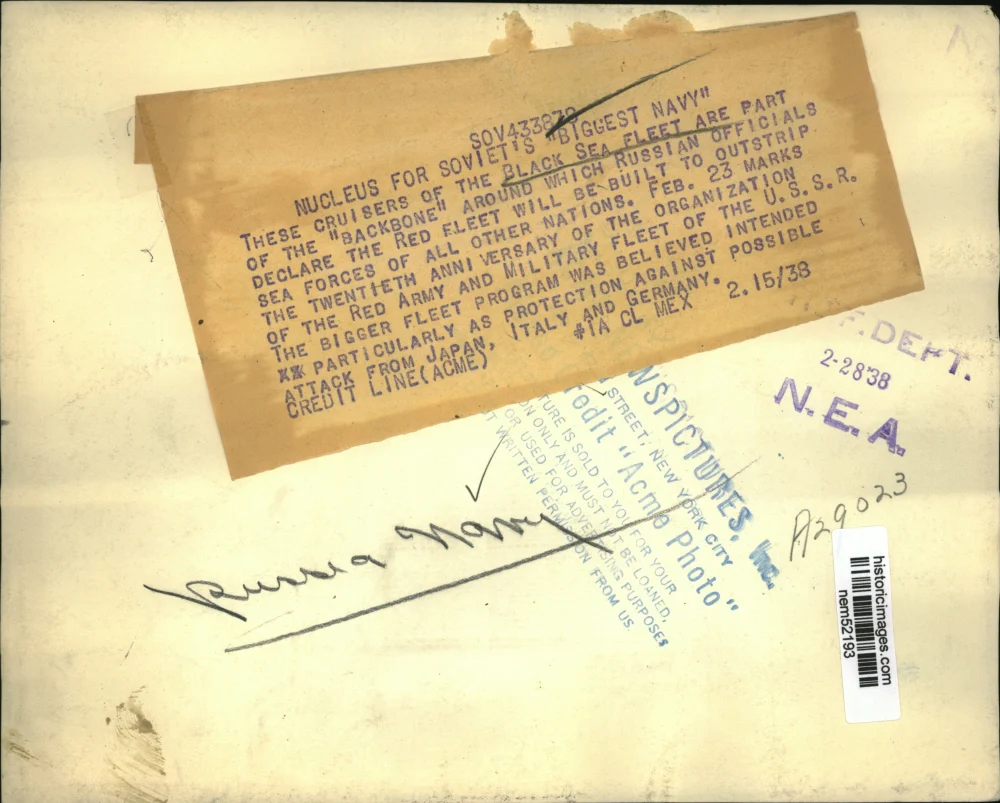 SOV433878
NUCLEUS FOR SOVIET'S "BIGGEST NAVY"
THESE CRUISERS OF THE BLACK SEA FLEET ARE PART
OF THE "BACKBONE" AROUND WHICH RUSSIAN OFFICIALS
DECLARE THE RED FLEET WILL BE BUILT TO OUTSTRIP
SEA FORCES OF ALL OTHER NATIONS. FEB. 23 MARKS
THE TWENTIETH ANNIVERSARY OF THE ORGANIZATION
OF THE RED ARMY AND MILITARY FLEET OF THE U.S.S.R.
THE BIGGER FLEET PROGRAM WAS BELIEVED INTENDED
XX PARTICULARLY AS PROTECTION AGAINST POSSIBLE
ATTACK FROM JAPAN, ITALY AND GERMANY.
CREDIT LINE(ACME) #1A CL MEX 2.15/38
F.DEPT.
2-28'38
N.E.A.
WSPICTURES, Inc.
STREET, NEW YORK CITY
redit "Acme Photo"
TURE IS SOLD TO YOU FOR YOUR
ON ONLY AND MUST NOT BE LOANED,
OR USED FOR ADVERTISING PURPOSES
T WRITTEN PERMISSION FROM US
A29023
Russia Navy
historicimages.com
nem52193